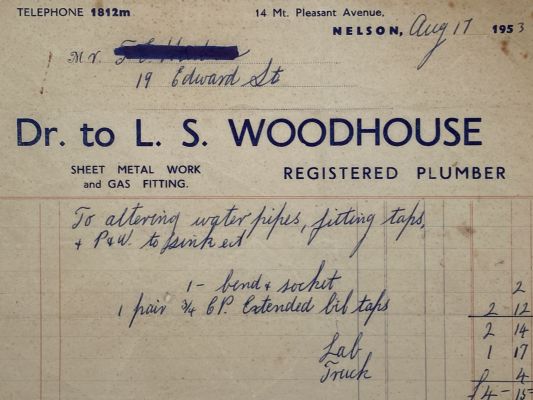 TELEPHONE 1812m
14 Mt. Pleasant Avenue,
NELSON, Aug 17 1953
Mr.
19 Edward St
Dr. to L. S. WOODHOUSE
SHEET METAL WORK REGISTERED PLUMBER
and GAS FITTING.
To altering water pipes, fitting taps,
+ P&W. to sink
1- bend & socket 2
1 pair 3/4 C.P. Extended bib taps 2 - 12
2 14
Lab 1 17
Truck 4
£4 - 15 -